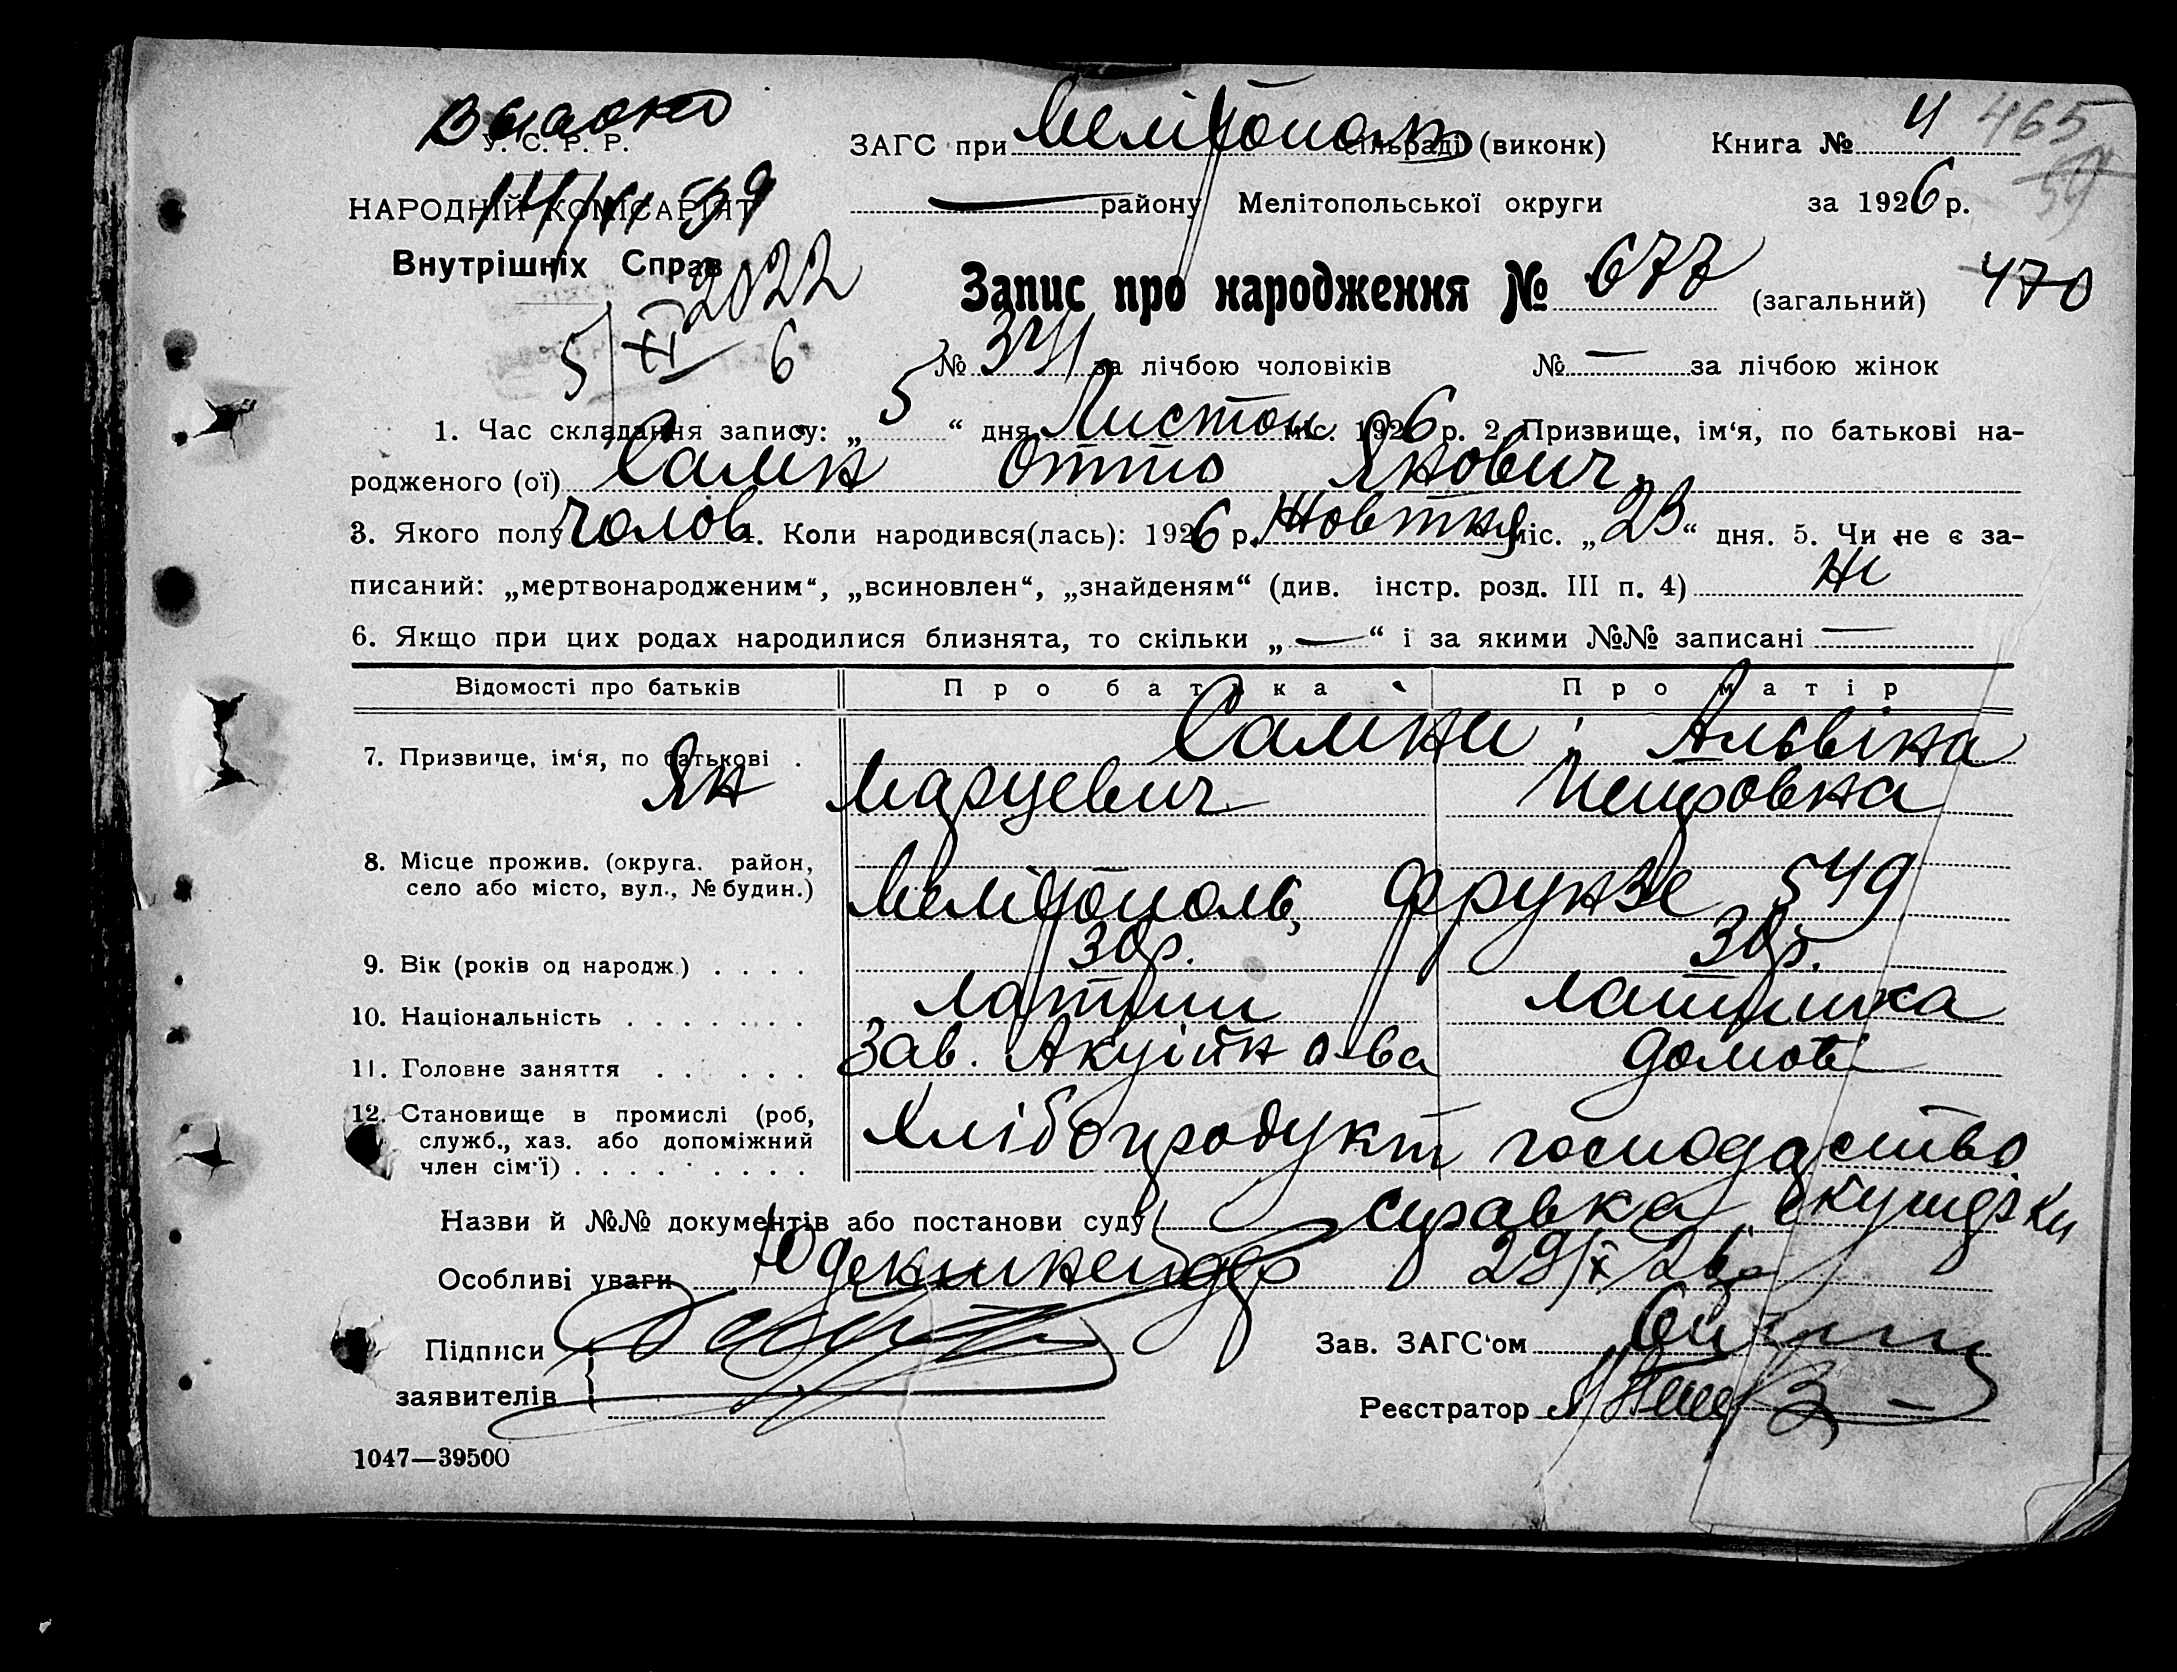 У. С. Р. Р.
ЗАГС при Мелітополь сільраді (виконк) Книга № 4 465
14/ 39
НАРОДНІЙ КОМІСАРІЯТ района Мелітопольської округи за 1926 р. 59
Внутрішніх Справ
2022
Запис про народження № 677 (загальний) 470
5/XI 6
№ 341 за лічбою чоловіків № — за лічбою жінок
1. Час складання запису: „ 5 “ дня Листоп міс. 1926 р. 2. Призвище, ім‘я, по батькові на-
родженого (ої) Самн Отто Янович
3. Якого полу чолов 4. Коли народився(лась): 1926 р. Жовтня міс. „ 23 “ дня. 5. Чи не є за-
писаний: „мертвонародженим“, „всиновлен“, „знайденям“ (див. інстр. розд. III п. 4) Ні
6. Якщо при цих родах народилися близнята, то скільки „ — “ і за якими №№ записані —
Відомості про батьків Про батька Про матір
7. Призвище, ім‘я, по батькові . Самни: Альвіна
Ян Марцевич Петровна
8. Місце прожив. (округа, район,
село або місто, вул., № будин.) Мелітополь, Фрунзе 549
9. Вік (років од народж.) . . . . 30р. 30р.
10. Національність . . . . . . . латиш латишка
11. Головне заняття . . . . . . Зав. Акційн о-ва домове
12. Становище в промислі (роб,
служб., хаз. або допоміжний
член сім‘ї) . . . . . . . . . Хлібопродукт господарство
Назви й №№ документів або постанови суду справка акушерки
Особливі уваги 29/X 26
Підписи
заявителів
Зав. ЗАГС‘ом
Реєстратор
1047—39500